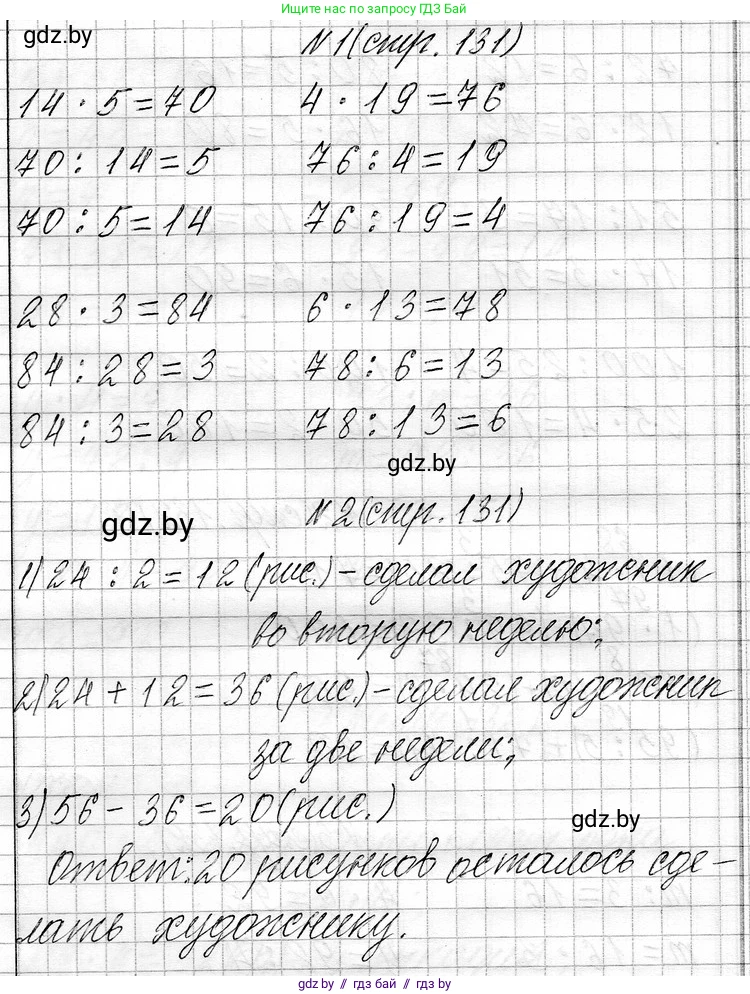 Ищите нас по запросу ГДЗ Бай
gdz.by
№1(стр. 131)
14 · 5 = 70 4 · 19 = 76
70 : 14 = 5 76 : 4 = 19
70 : 5 = 14 76 : 19 = 4
28 · 3 = 84 6 · 13 = 78
84 : 28 = 3 78 : 6 = 13
84 : 3 = 28 78 : 13 = 6
gdz.by
gdz.by
№2(стр. 131)
1) 24 : 2 = 12 (рис.) – сделал художник
во вторую неделю;
2) 24 + 12 = 36 (рис.) – сделал художник
за две недели;
3) 56 – 36 = 20 (рис.)
gdz.by
Ответ: 20 рисунков осталось сде-
лать художнику.
gdz.by // гдз бай // gdz.by